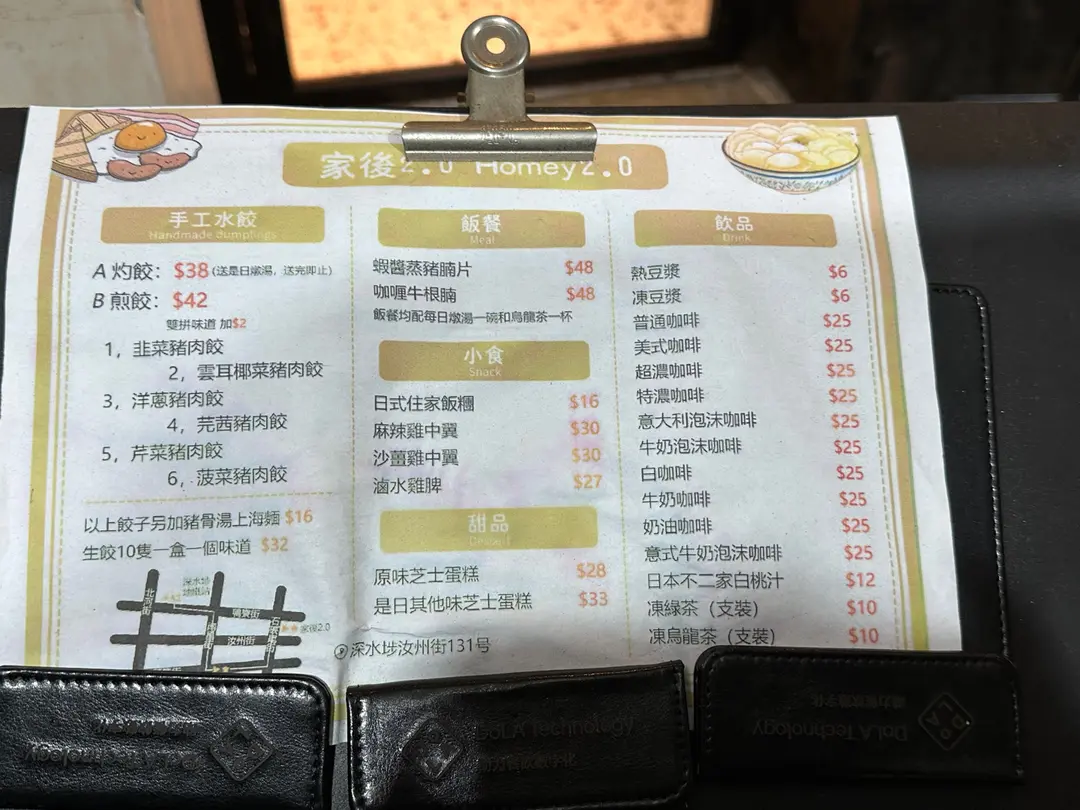 家後2.0 Homey2.0
手工水餃
Handmade Dumplings
A 灼餃：$38(送是日燉湯，送完即止)
B 煎餃：$42
雙拼味道 加$2
1，韭菜豬肉餃
2，雲耳椰菜豬肉餃
3，洋蔥豬肉餃
4，芫茜豬肉餃
5，芹菜豬肉餃
6，菠菜豬肉餃
以上餃子另加豬骨湯上海麵 $16
生餃10隻一盒一個味道 $32
深水埗
地鐵站
北河街
福榮街
汝州街
家後2.0
飯餐
Meal
蝦醬蒸豬腩片 $48
咖喱牛根腩 $48
飯餐均配每日燉湯一碗和烏龍茶一杯
小食
Snack
日式住家飯糰 $16
麻辣雞中翼 $30
沙薑雞中翼 $30
滷水雞脾 $27
甜品
Dessert
原味芝士蛋糕 $28
是日其他味芝士蛋糕 $33
深水埗汝州街131号
飲品
Drink
熱豆漿 $6
凍豆漿 $6
普通咖啡 $25
美式咖啡 $25
超濃咖啡 $25
特濃咖啡 $25
意大利泡沫咖啡 $25
牛奶泡沫咖啡 $25
白咖啡 $25
牛奶咖啡 $25
奶油咖啡 $25
意式牛奶泡沫咖啡 $25
日本不二家白桃汁 $12
凍綠茶（支裝） $10
凍烏龍茶（支裝） $10
DoLA Technology
DoLA Technology
DoLA Technology